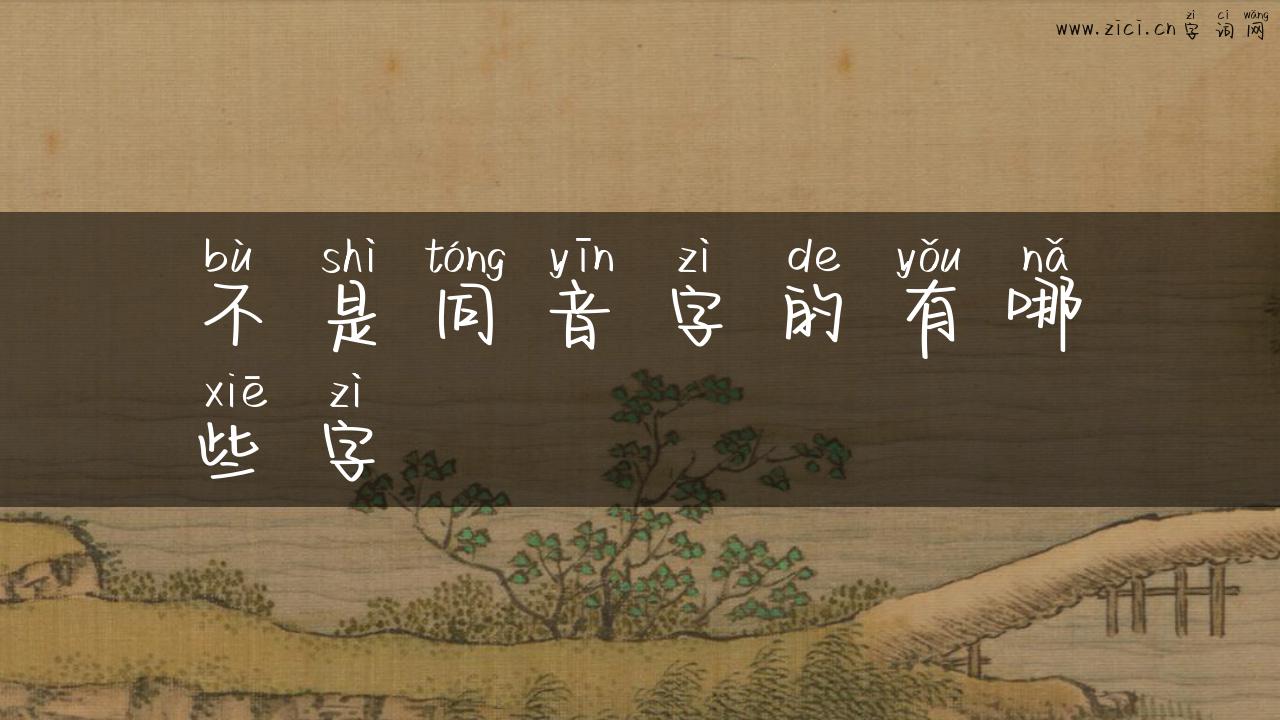 zì cí wǎng
www.zici.cn 字 词 网
bù shì tóng yīn zì de yǒu nǎ
不 是 同 音 字 的 有 哪
xiē zì
些 字